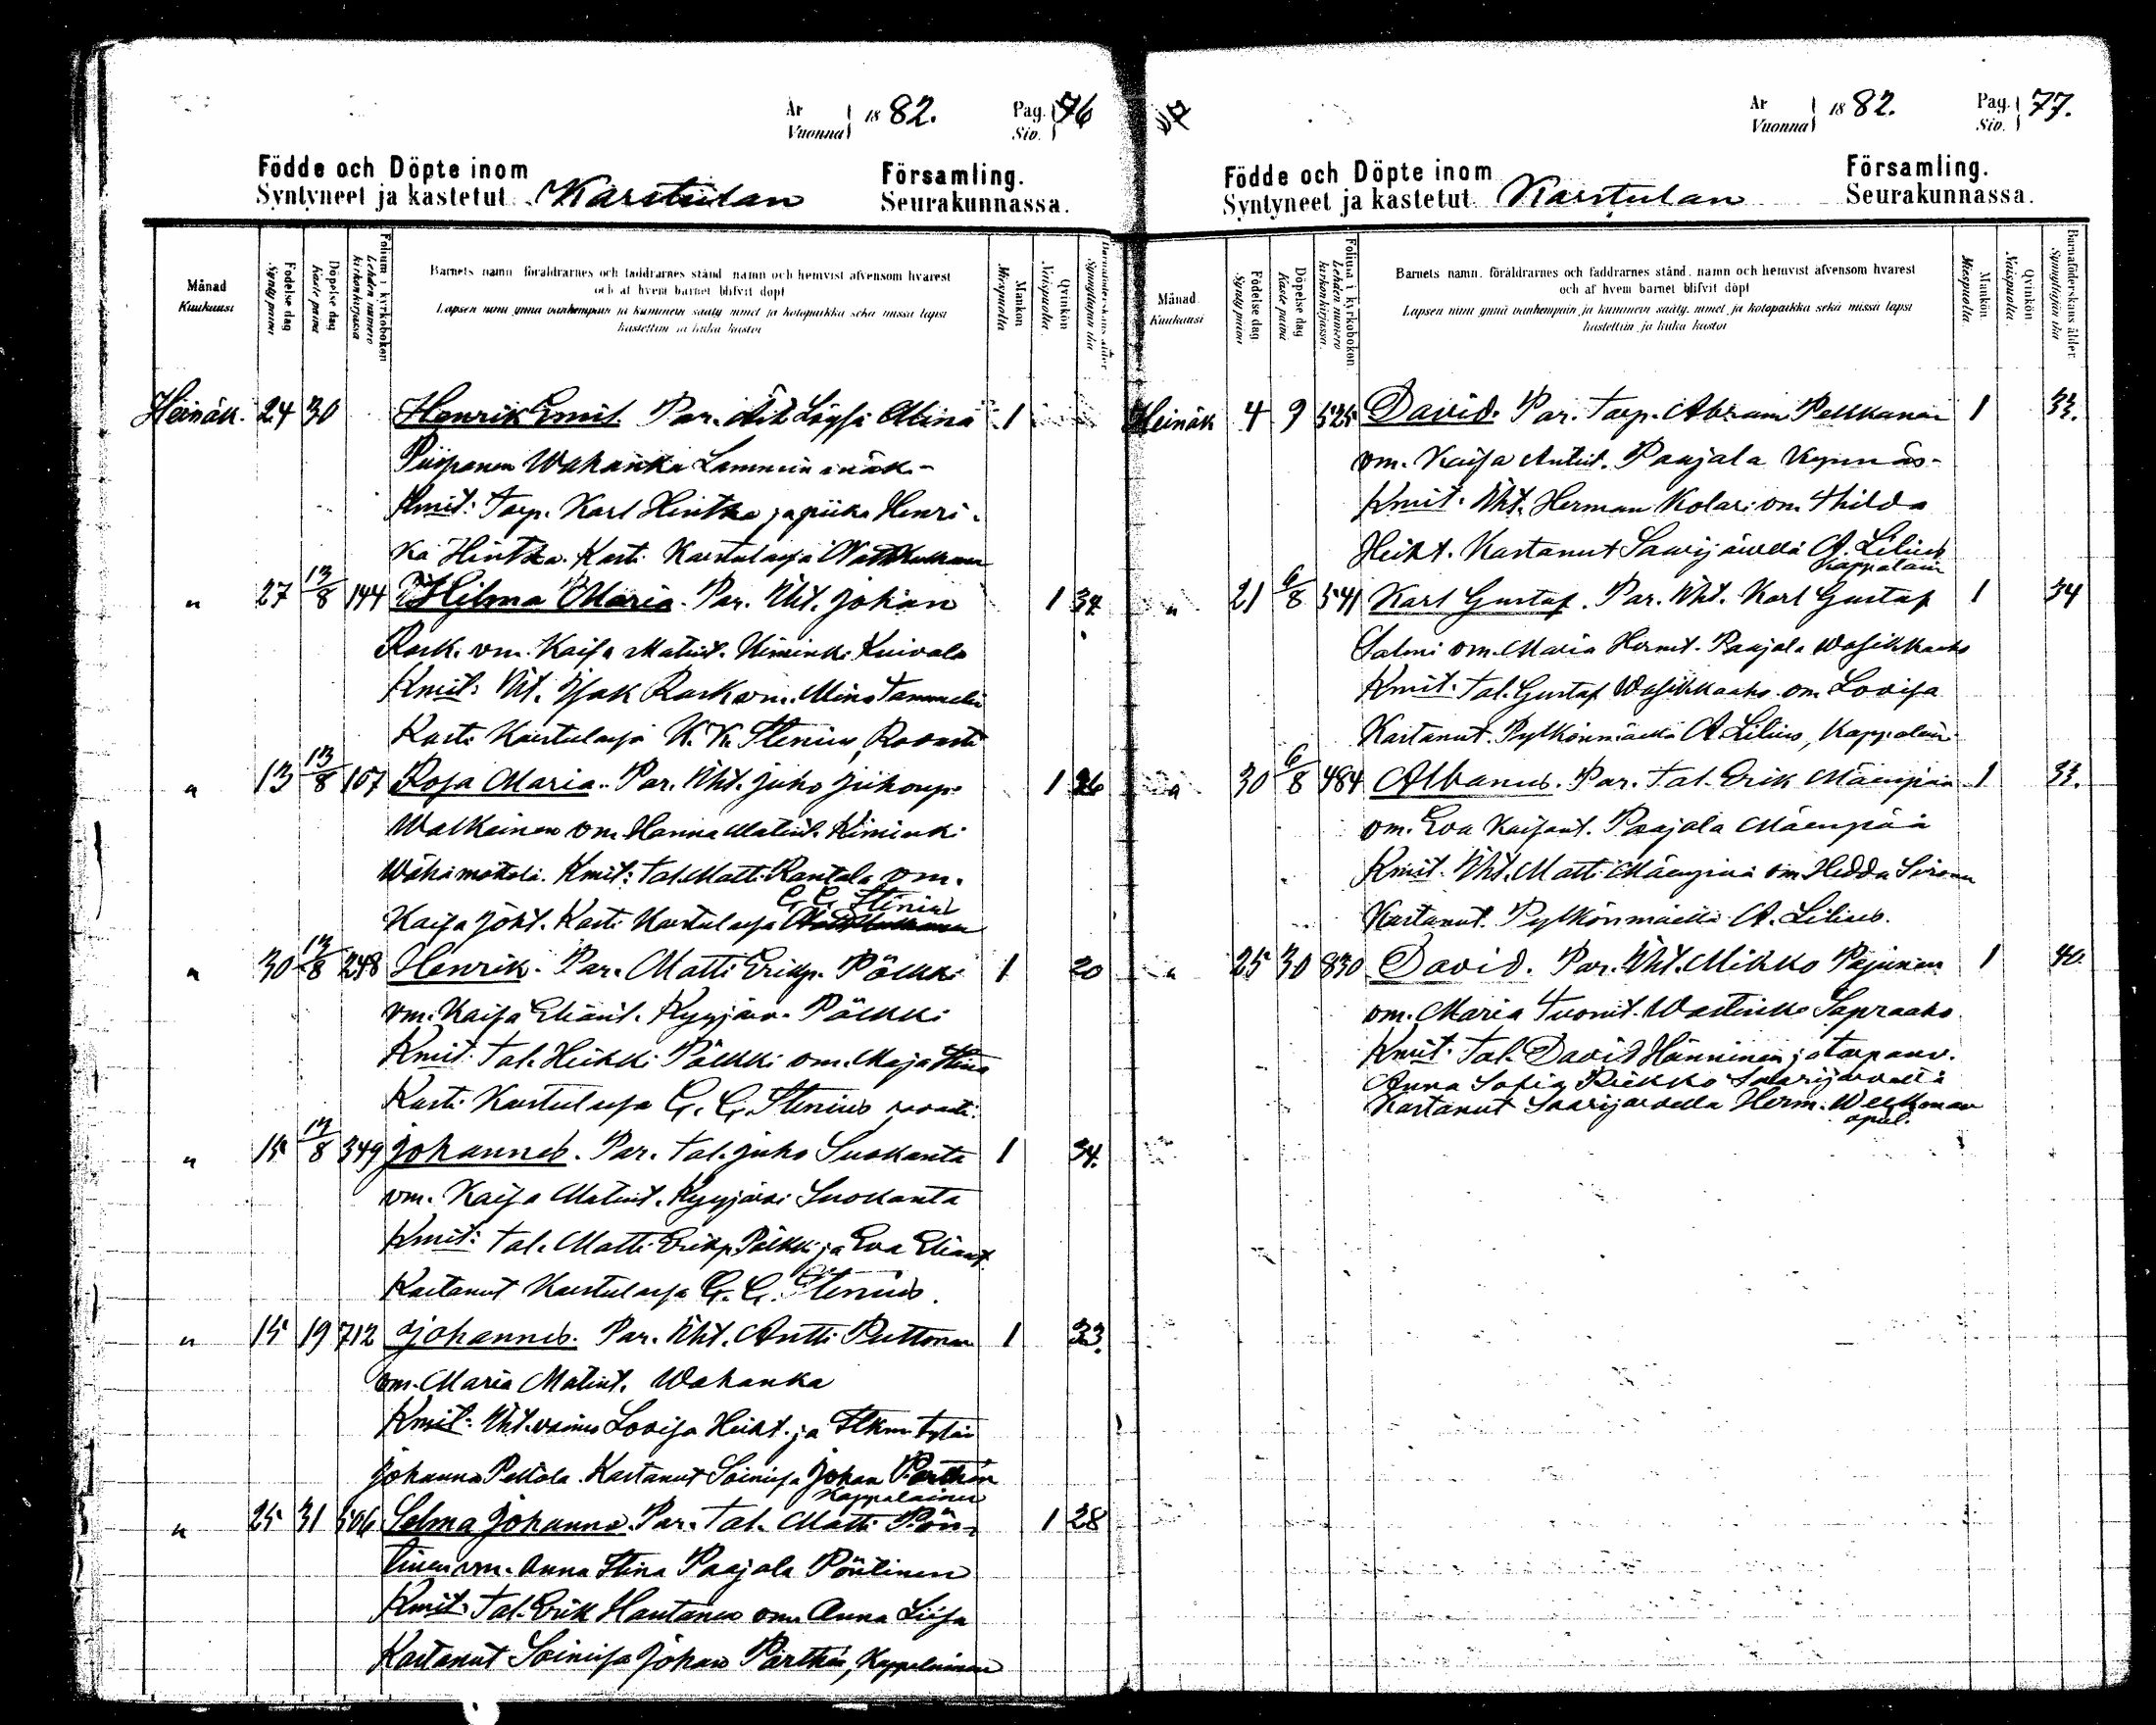 År Vuonna 1882. Pag. Siv. 76
Födde och Döpte inom Församling.
Syntyneet ja kastetut Karstulan Seurakunnassa.
Månad Kuukausi
Födelse dag Synty päivä
Döpelse dag Kaste päivä
Folium i kyrkoboken Lehden numero kirkonkirjassa
Barnets namn föräldrarnes och faddrarnes stånd namn och hemvist äfvensom hvarest
och af hvem barnet blifvit döpt
Lapsen nimi ynnä vanhempain ja kummein sääty nimet ja kotopaikka sekä missä lapsi
kastettiin ja kuka kastoi
Mankön Miespuolia
Qvinkön Naispuolia
Barnaföderskans ålder Synnyttäjän ikä
Heinäk. 24 30 Henrik Emil. Par. Löysä Alina 1
Piispanen Wahanka
Kmit: Torp. Karl Hintka ja piika Henri-
ka Hintka. Kasti Karstulassa
" 27 13/8 144 Hilma Maria. Par. Uht. Johan 1 34
Rask. vm. Kaisa Matint. Kiminki Kuivala
Kmit: Uht. Isak Rask vm. Mina
Kasti Karstulassa K. K. Stenius, Rovasti
" 13 13/8 107 Rosa Maria. Par. Uht. Juho Juhonp. 1 26
Walkeinen vm. Hanna Matint. Kiminki
Kmit: Tal. Matti Rantala vm.
G. G. Stenius
Kaisa Joht. Kasti Karstulassa
" 30 13/8 248 Henrik. Par. Matti Erikp. Pölkki 1 20
vm. Kaisa Eliant. Kyyjärv. Pölkki
Kmit: Tal. Heikki Pölkki vm. Maja Stina
Kasti Karstulassa G. G. Stenius rovasti
" 15 13/8 349 Johannes. Par. Tal. Juho Suokanta 1 34.
vm. Kaisa Matint. Kyyjärvi Suokanta
Kmit: Tal. Matti Erikp. Pölkki ja Eva Eliant
Kastanut Karstulassa G. G. Stenius.
" 15 19 712 Johannes. Par. Uht. Antti Puttonen 1 33.
vm. Maria Matint. Wahanka
Kmit: Uht. vaimo Lovisa Heikt. ja
Johanna Peltola. Kastanut Soinissa Johan Parthén
Kappalainen
" 25 31 506 Selma Johanna. Par. Tal. Matti Pön- 1 28
tinen vm. Anna Stina Paajala Pöntinen
Kmit: Tal. Erik Hautanen vm. Anna Liisa
Kastanut Soinissa Johan Parthén, Kappalainen
År Vuonna 1882. Pag. Siv. 77.
Födde och Döpte inom Församling.
Syntyneet ja kastetut Karstulan Seurakunnassa.
Månad Kuukausi
Födelse dag Synty päivä
Döpelse dag Kaste päivä
Folium i kyrkoboken Lehden numero kirkonkirjassa.
Barnets namn. föräldrarnes och faddrarnes stånd. namn och hemvist äfvensom hvarest
och af hvem barnet blifvit döpt
Lapsen nimi ynnä vanhempain ja kummein sääty. nimet ja kotopaikka sekä missä lapsi
kastettiin ja kuka kastoi
Mankön Miespuolia
Qvinkön Naispuolia
Barnaföderskans ålder Synnyttäjän ikä
Heinäk 4 9 525 David. Par. Torp. Abram Pekkanen 1 33.
vm. Kaisa Antint. Paajala
Kmit. Uht. Herman Kolari vm. Hilda
Heikt. Kastanut Saarijärvellä A. Lilius
Kappalain
" 21 6/8 541 Karl Gustaf. Par. Uht. Karl Gustaf 1 34
Salmi vm. Maria Hermt. Paajala Wasikkaaho
Kmit. Tal. Gustaf Wasikkaaho vm. Lovisa
Kastanut. Pylkönmäellä A. Lilius, Kappalain
" 30 6/8 484 Albanus. Par. Tal. Erik Mäenpää 1 33.
vm. Eva Kaisant. Paajala Mäenpää
Kmit. Uht. Matti Mäenpää vm. Hedda
Kastanut. Pylkönmäellä A. Lilius.
" 25 30 830 David. Par. Uht. Mikko Pajunen 1 40.
vm. Maria Tuomt. Wastinki
Kmit. Tal. David Hänninen ja
Anna Sofia Riekko Saarijärveltä
Kastanut Saarijärvellä Herm. Weckman
apul.